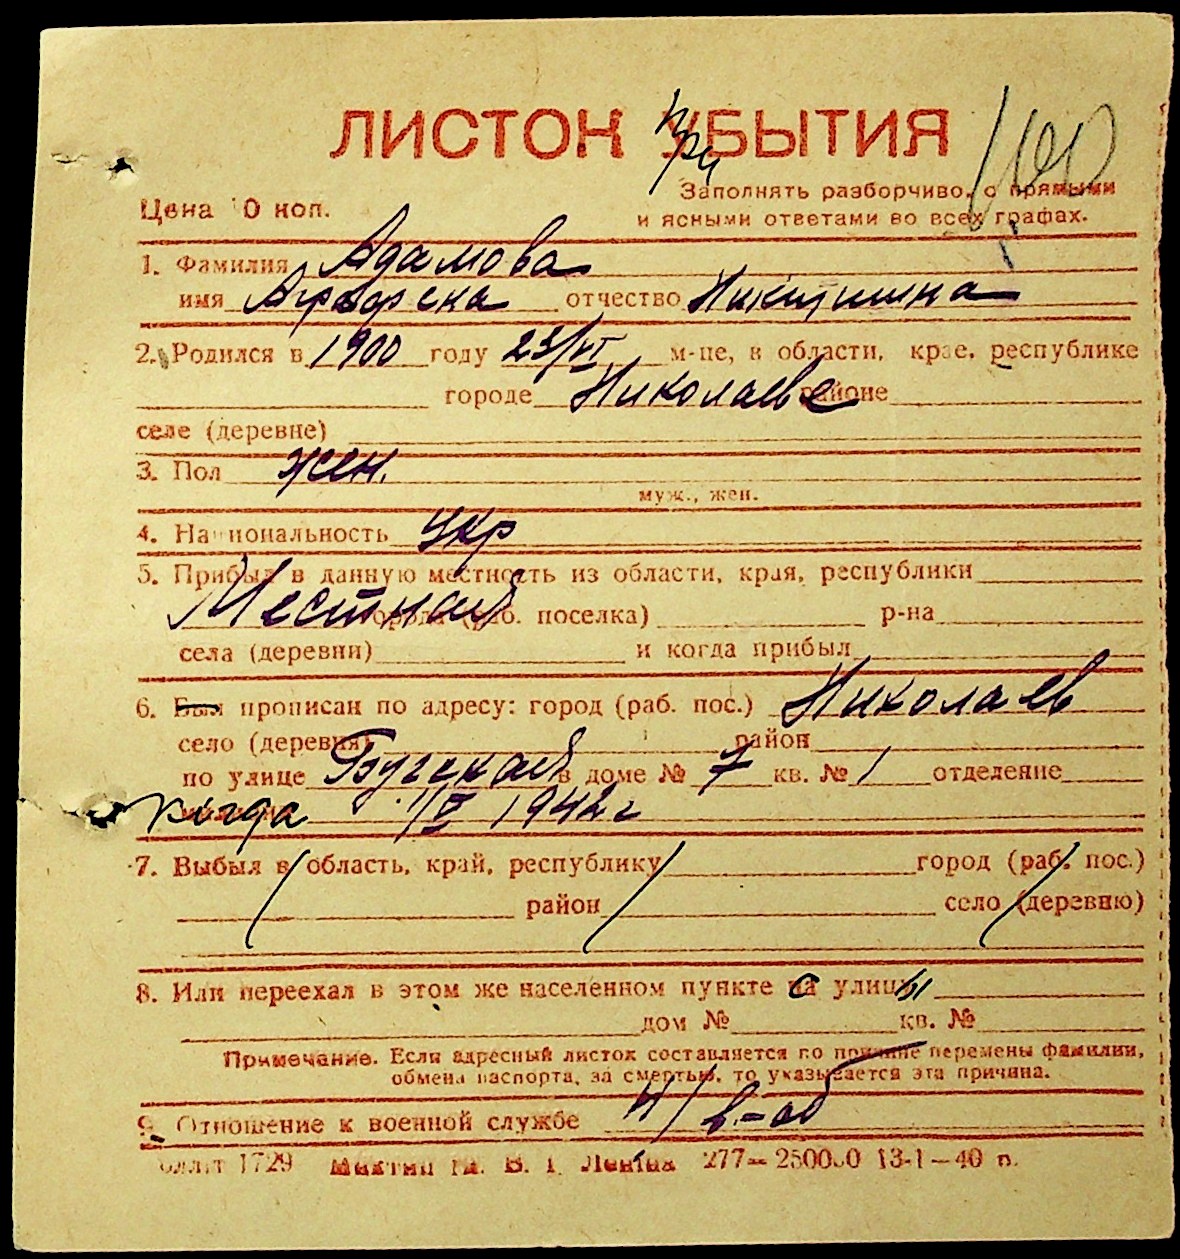 ЛИСТОК УБЫТИЯ
При
100
Заполнять разборчиво, с прямыми
Цена 10 коп.
и ясными ответами во всех графах.
1. Фамилия Адамова
имя отчество Никитишна
2. Родился в 1900 году 23/VI м-це, в области, крае, республике
городе Николаеве районе
селе (деревне)
3. Пол жен.
муж., жен.
4. Национальность Укр
5. Прибыл в данную местность из области, края, республики
Местная города (раб. поселка) р-на
села (деревни) и когда прибыл
6. Был прописан по адресу: город (раб. пос.) Николаев
село (деревня) район
по улице Бугская в доме № 7 кв. № 1 отделение
когда 1/V 1942 г
7. Выбыл в область, край, республику город (раб. пос.)
район село (деревню)
8. Или переехал в этом же населенном пункте с улицы
дом № кв. №
Примечание. Если адресный листок составляется по причине перемены фамилии,
обмена паспорта, за смертью, то указывается эта причина.
9. Отношение к военной службе н/в-об
1729 им. В. І. Леніна 277—250000 13-1—40 р.